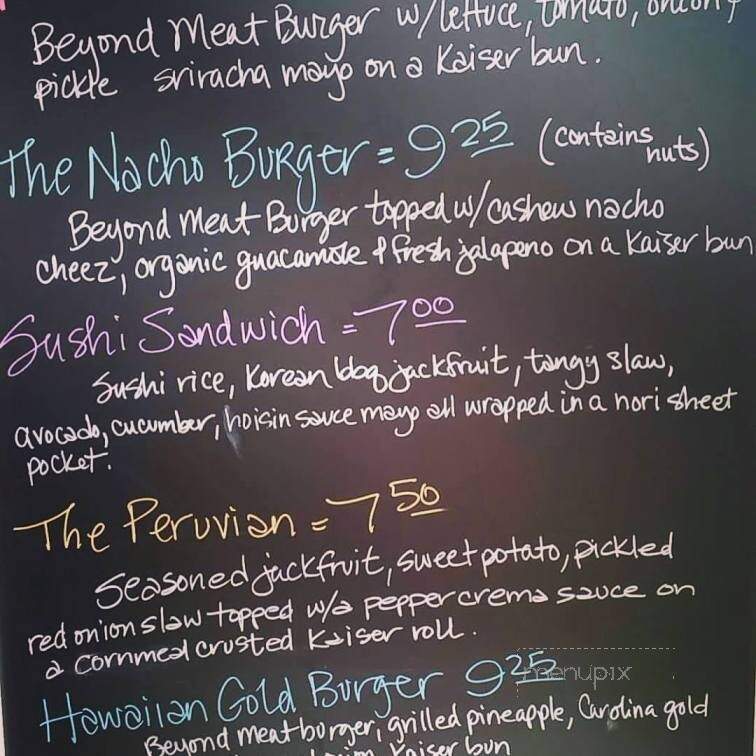 Beyond Meat Burger w/lettuce, tomato, onion,
pickle sriracha mayo on a Kaiser bun.
The Nacho Burger = 9 25 (contains
nuts)
Beyond Meat Burger topped w/cashew nacho
cheez, organic guacamole & fresh jalapeno on a Kaiser bun
Sushi Sandwich = 7 00
Sushi rice, Korean bbq jackfruit, tangy slaw,
avocado, cucumber, hoisin sauce mayo all wrapped in a nori sheet
pocket.
The Peruvian = 7 50
Seasoned jackfruit, sweet potato, pickled
red onion slaw topped w/a pepper crema sauce on
a cornmeal crusted Kaiser roll.
Hawaiian Gold Burger 9 25
menupix
Beyond Meat burger, grilled pineapple, Carolina gold
Kaiser bun